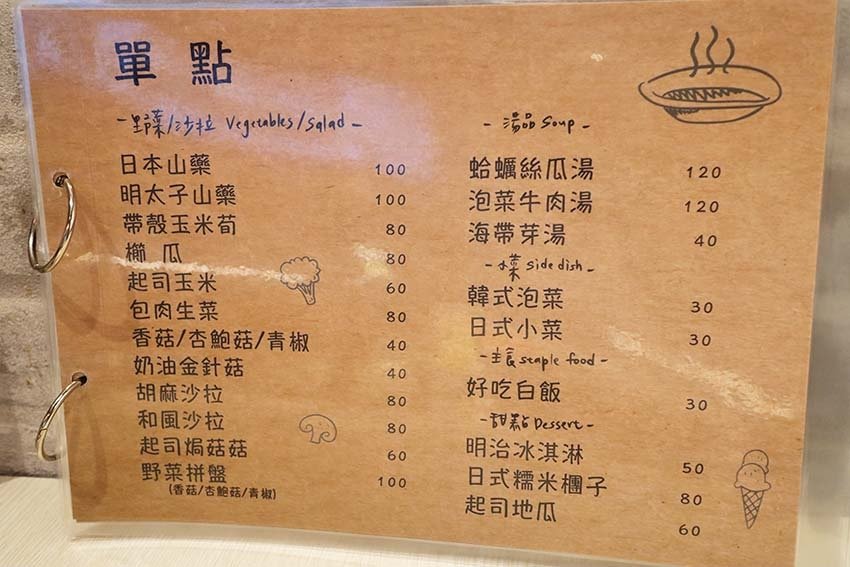 單點
-野菜/沙拉 Vegetables/Salad-
日本山藥 100
明太子山藥 100
帶殼玉米荀 80
櫛瓜 80
起司玉米 60
包肉生菜 80
香菇/杏鮑菇/青椒 40
奶油金針菇 40
胡麻沙拉 80
和風沙拉 80
起司焗菇菇 60
野菜拼盤 100
(香菇/杏鮑菇/青椒)
-湯品 Soup-
蛤蠣絲瓜湯 120
泡菜牛肉湯 120
海帶芽湯 40
-小菜 Side dish-
韓式泡菜 30
日式小菜 30
-主食 staple food-
好吃白飯 30
-甜點 Dessert-
明治冰淇淋 50
日式糯米糰子 80
起司地瓜 60